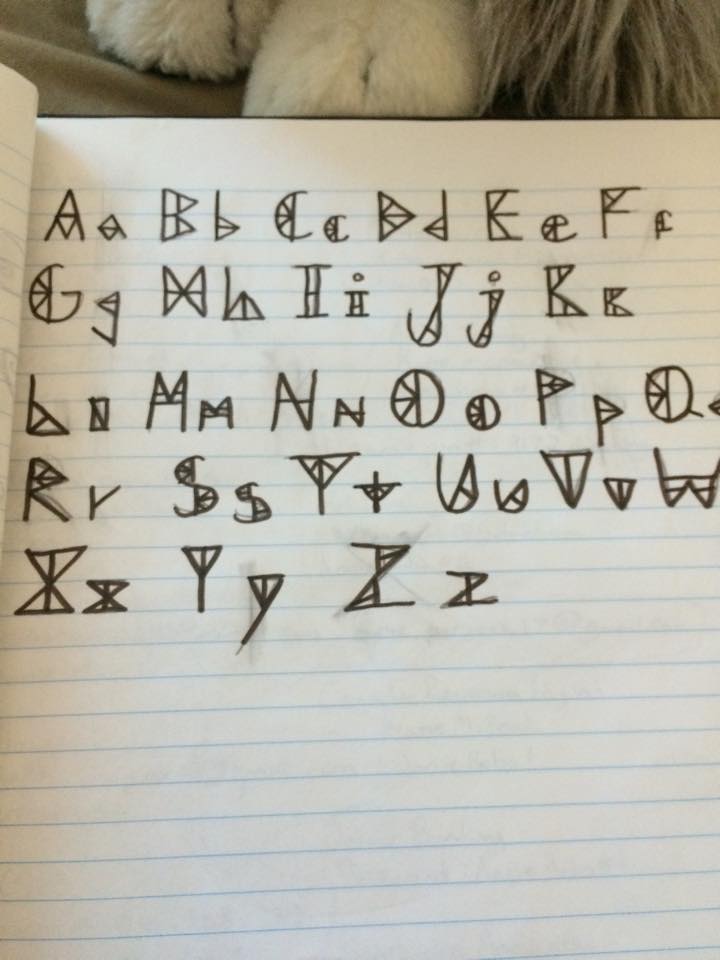 A a B b C c D d E e F f
G g H h I i J j K k
L l M m N n O o P p Q
R r S s T t U u V v W
X x Y y Z z